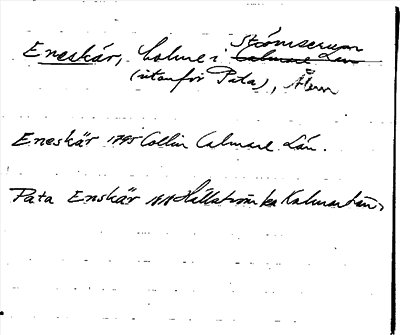 Eneskär, holme i Strömserum Calmare Län
(utanför Pata), Ålem
Eneskär 1795 Collin Calmare Län.
Pata Enskär Hällström ka Kalmar län